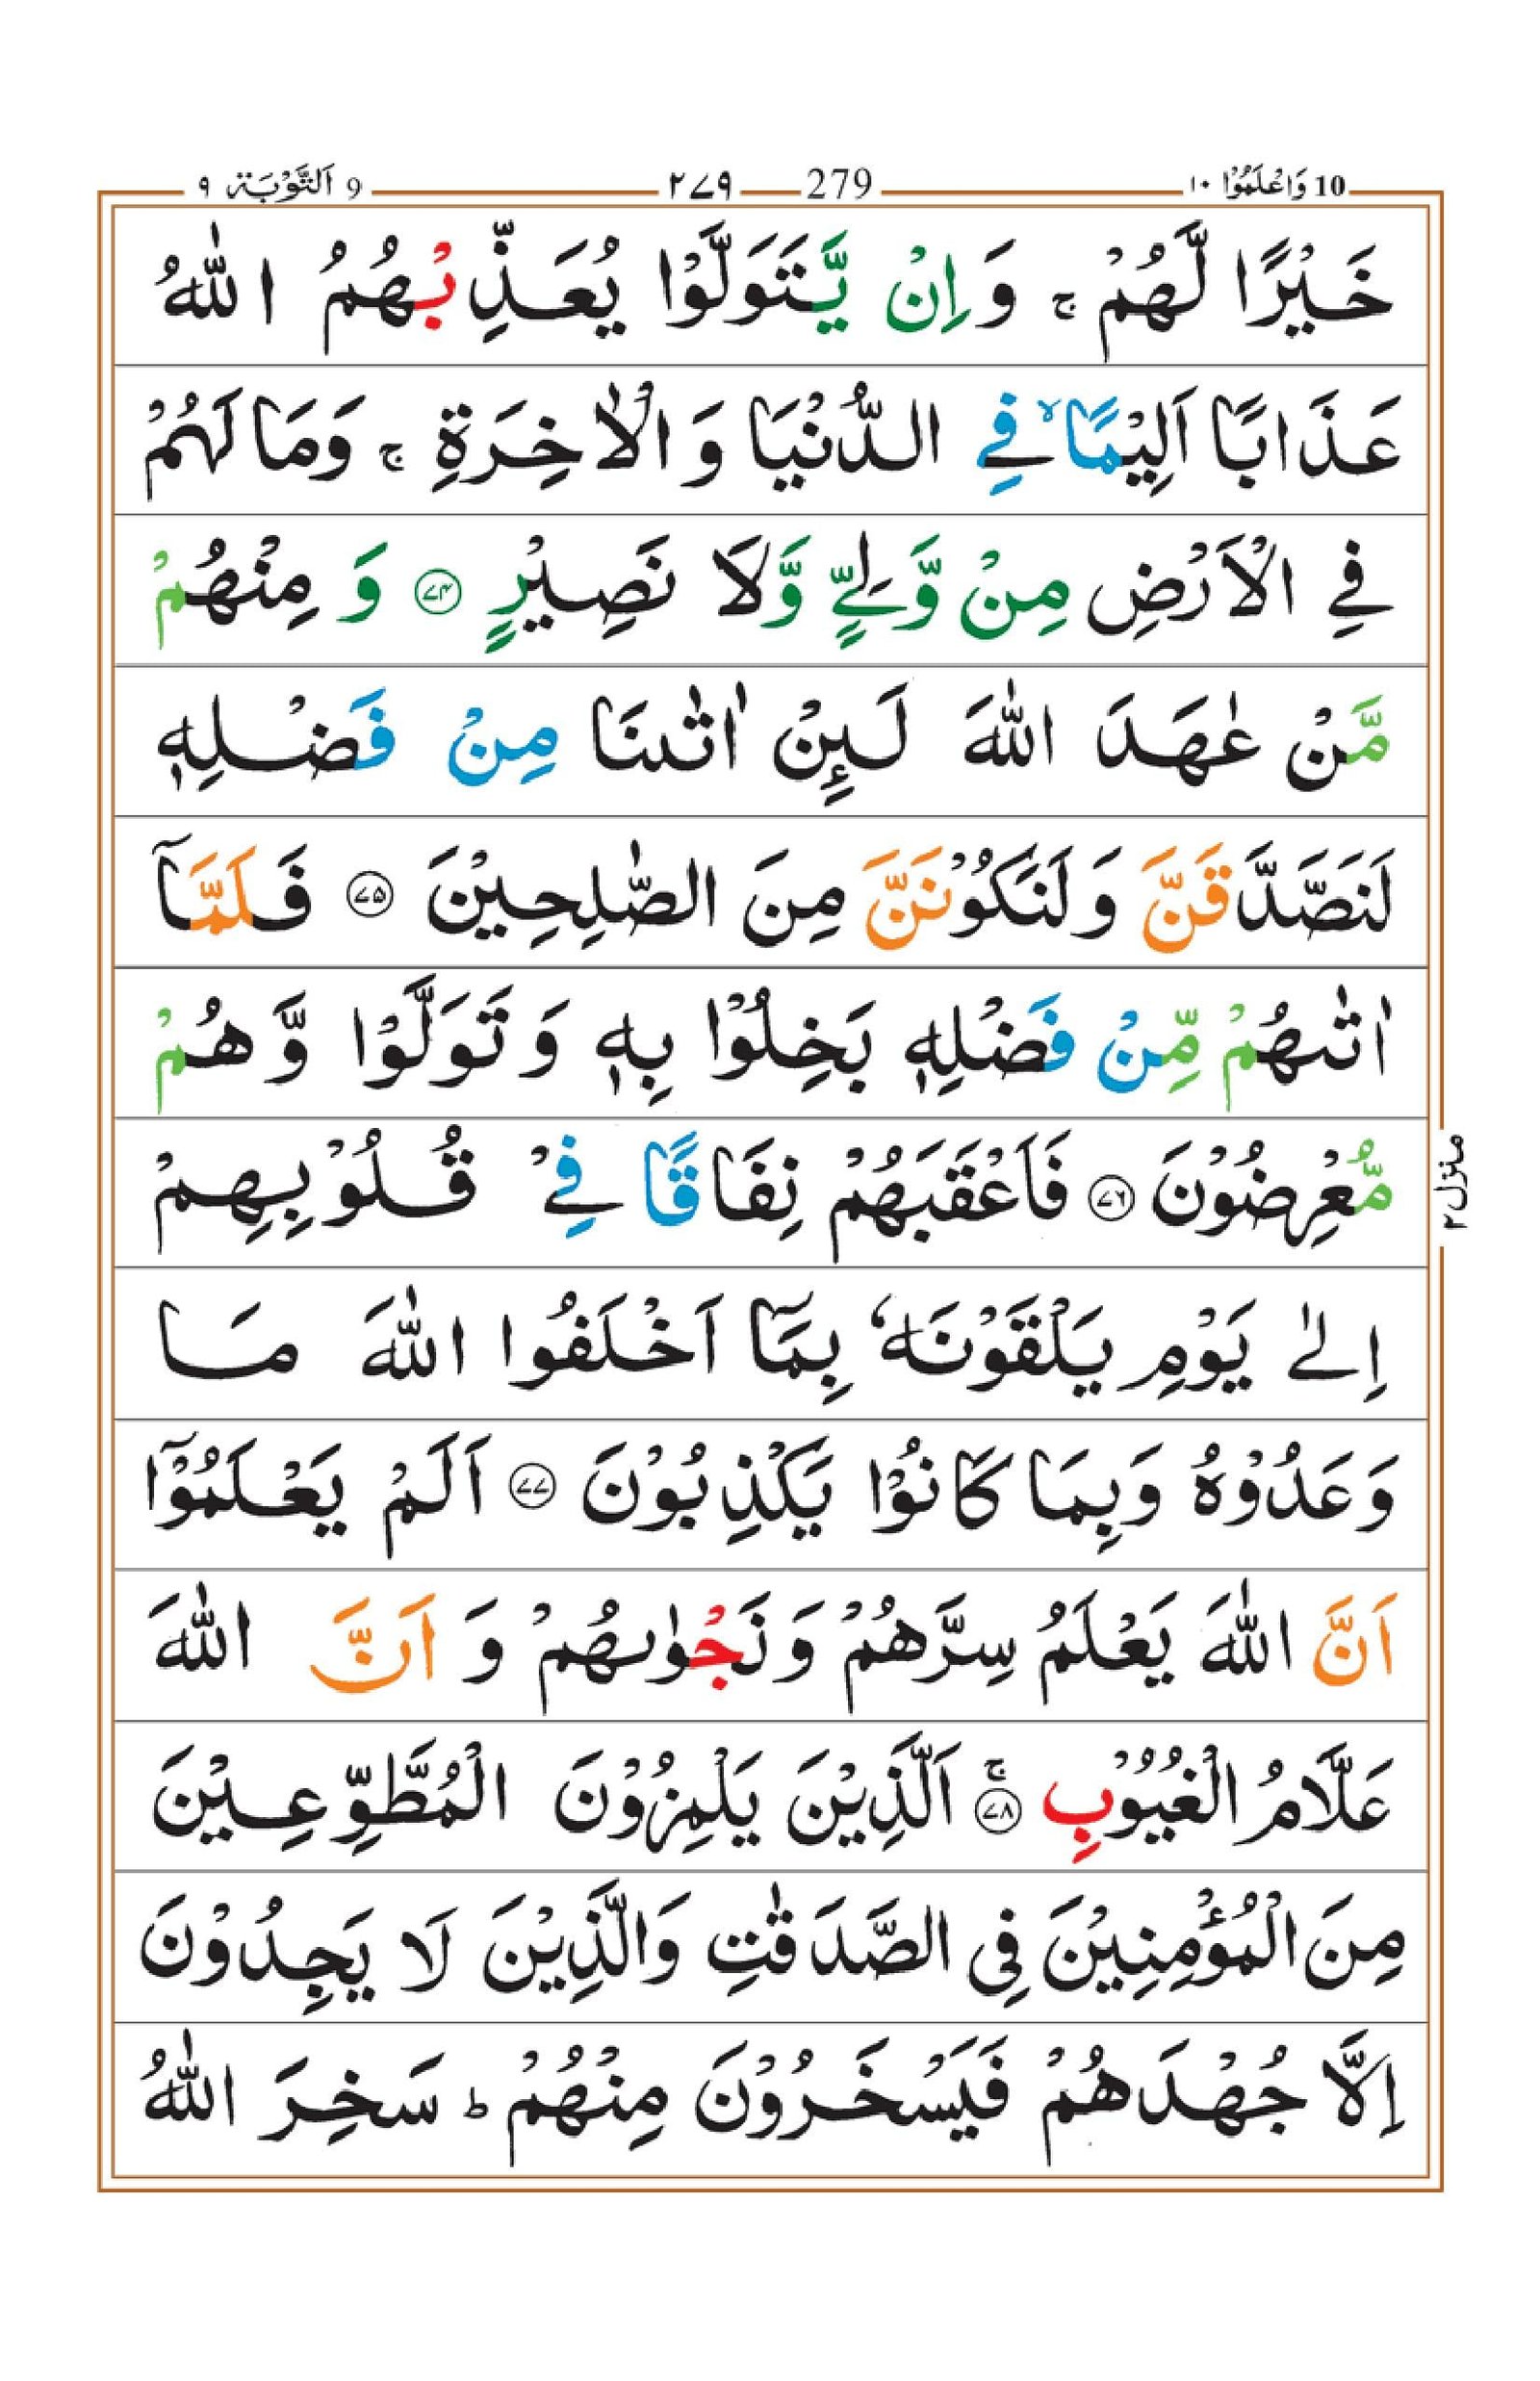 10 وَاعْلَمُوْۤا ۱۰ 279 ۲۷۹ 9 اَلتَّوْبَة ۹
خَيْرًا لَّهُمْ ۚ وَاِنْ يَّتَوَلَّوْا يُعَذِّبْهُمُ اللّٰهُ
عَذَابًا اَلِيْمًا ۙ فِي الدُّنْيَا وَالْاٰخِرَةِ ۚ وَمَا لَهُمْ
فِي الْاَرْضِ مِنْ وَّلِيٍّ وَّلَا نَصِيْرٍ ۷۴ وَمِنْهُمْ
مَّنْ عٰهَدَ اللّٰهَ لَىِٕنْ اٰتٰىنَا مِنْ فَضْلِهٖ
لَنَصَّدَّقَنَّ وَلَنَكُوْنَنَّ مِنَ الصّٰلِحِيْنَ ۷۵ فَلَمَّاۤ
اٰتٰىهُمْ مِّنْ فَضْلِهٖ بَخِلُوْا بِهٖ وَتَوَلَّوْا وَّهُمْ
مُّعْرِضُوْنَ ۷۶ فَاَعْقَبَهُمْ نِفَاقًا فِيْ قُلُوْبِهِمْ
اِلٰى يَوْمِ يَلْقَوْنَهٗ بِمَاۤ اَخْلَفُوا اللّٰهَ مَا
وَعَدُوْهُ وَبِمَا كَانُوْا يَكْذِبُوْنَ ۷۷ اَلَمْ يَعْلَمُوْۤا
اَنَّ اللّٰهَ يَعْلَمُ سِرَّهُمْ وَنَجْوٰىهُمْ وَاَنَّ اللّٰهَ
عَلَّامُ الْغُيُوْبِ ۷۸ ۚ اَلَّذِيْنَ يَلْمِزُوْنَ الْمُطَّوِّعِيْنَ
مِنَ الْمُؤْمِنِيْنَ فِى الصَّدَقٰتِ وَالَّذِيْنَ لَا يَجِدُوْنَ
اِلَّا جُهْدَهُمْ فَيَسْخَرُوْنَ مِنْهُمْ ؕ سَخِرَ اللّٰهُ
منزل ۲